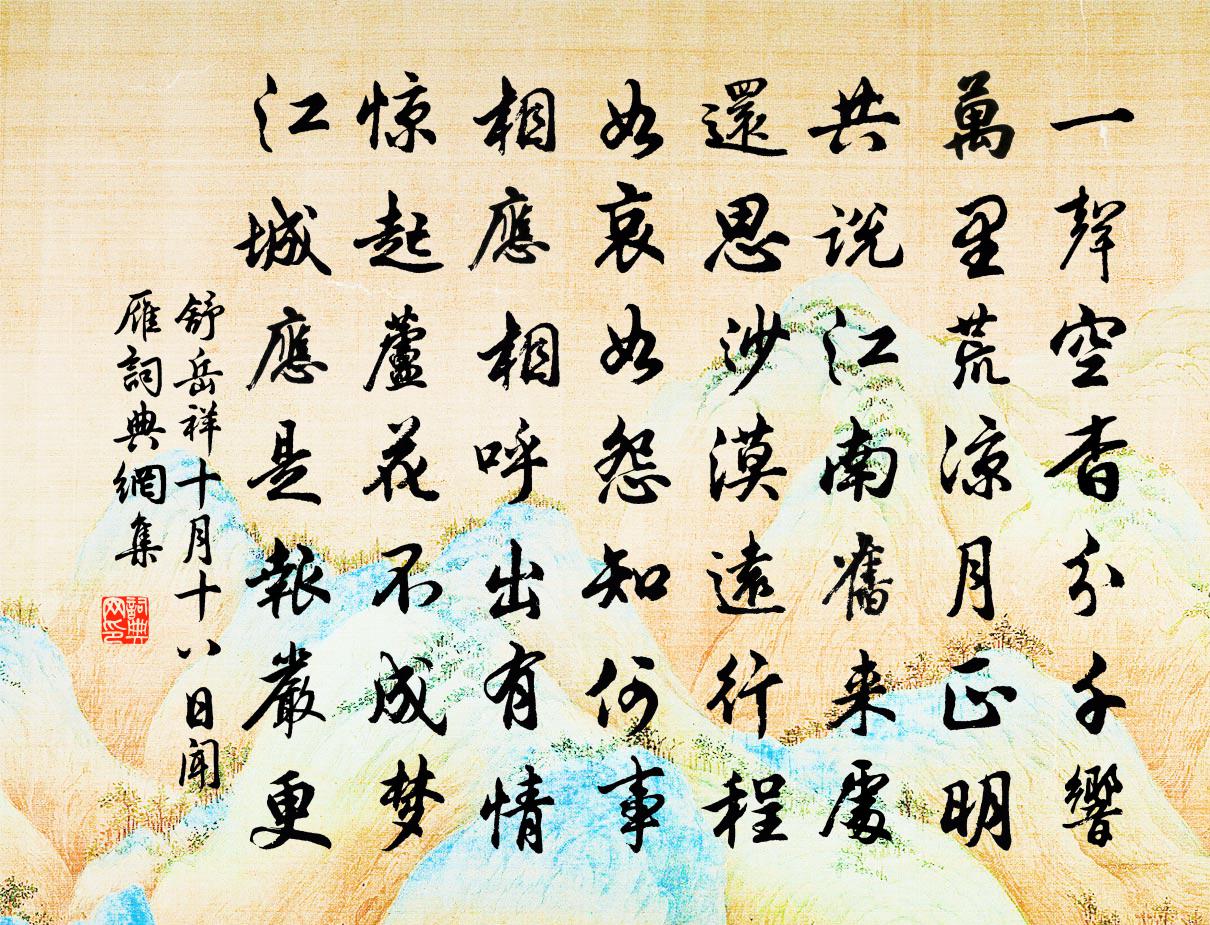 一聲空杳分千響
萬里荒凉月正明
共説江南舊来處
還思沙漠遠行程
如哀如怨知何事
相應相呼出有情
惊起蘆花不成梦
江城應是報嚴更
舒岳祥十月十八日聞
雁詞典網集
詞典网印